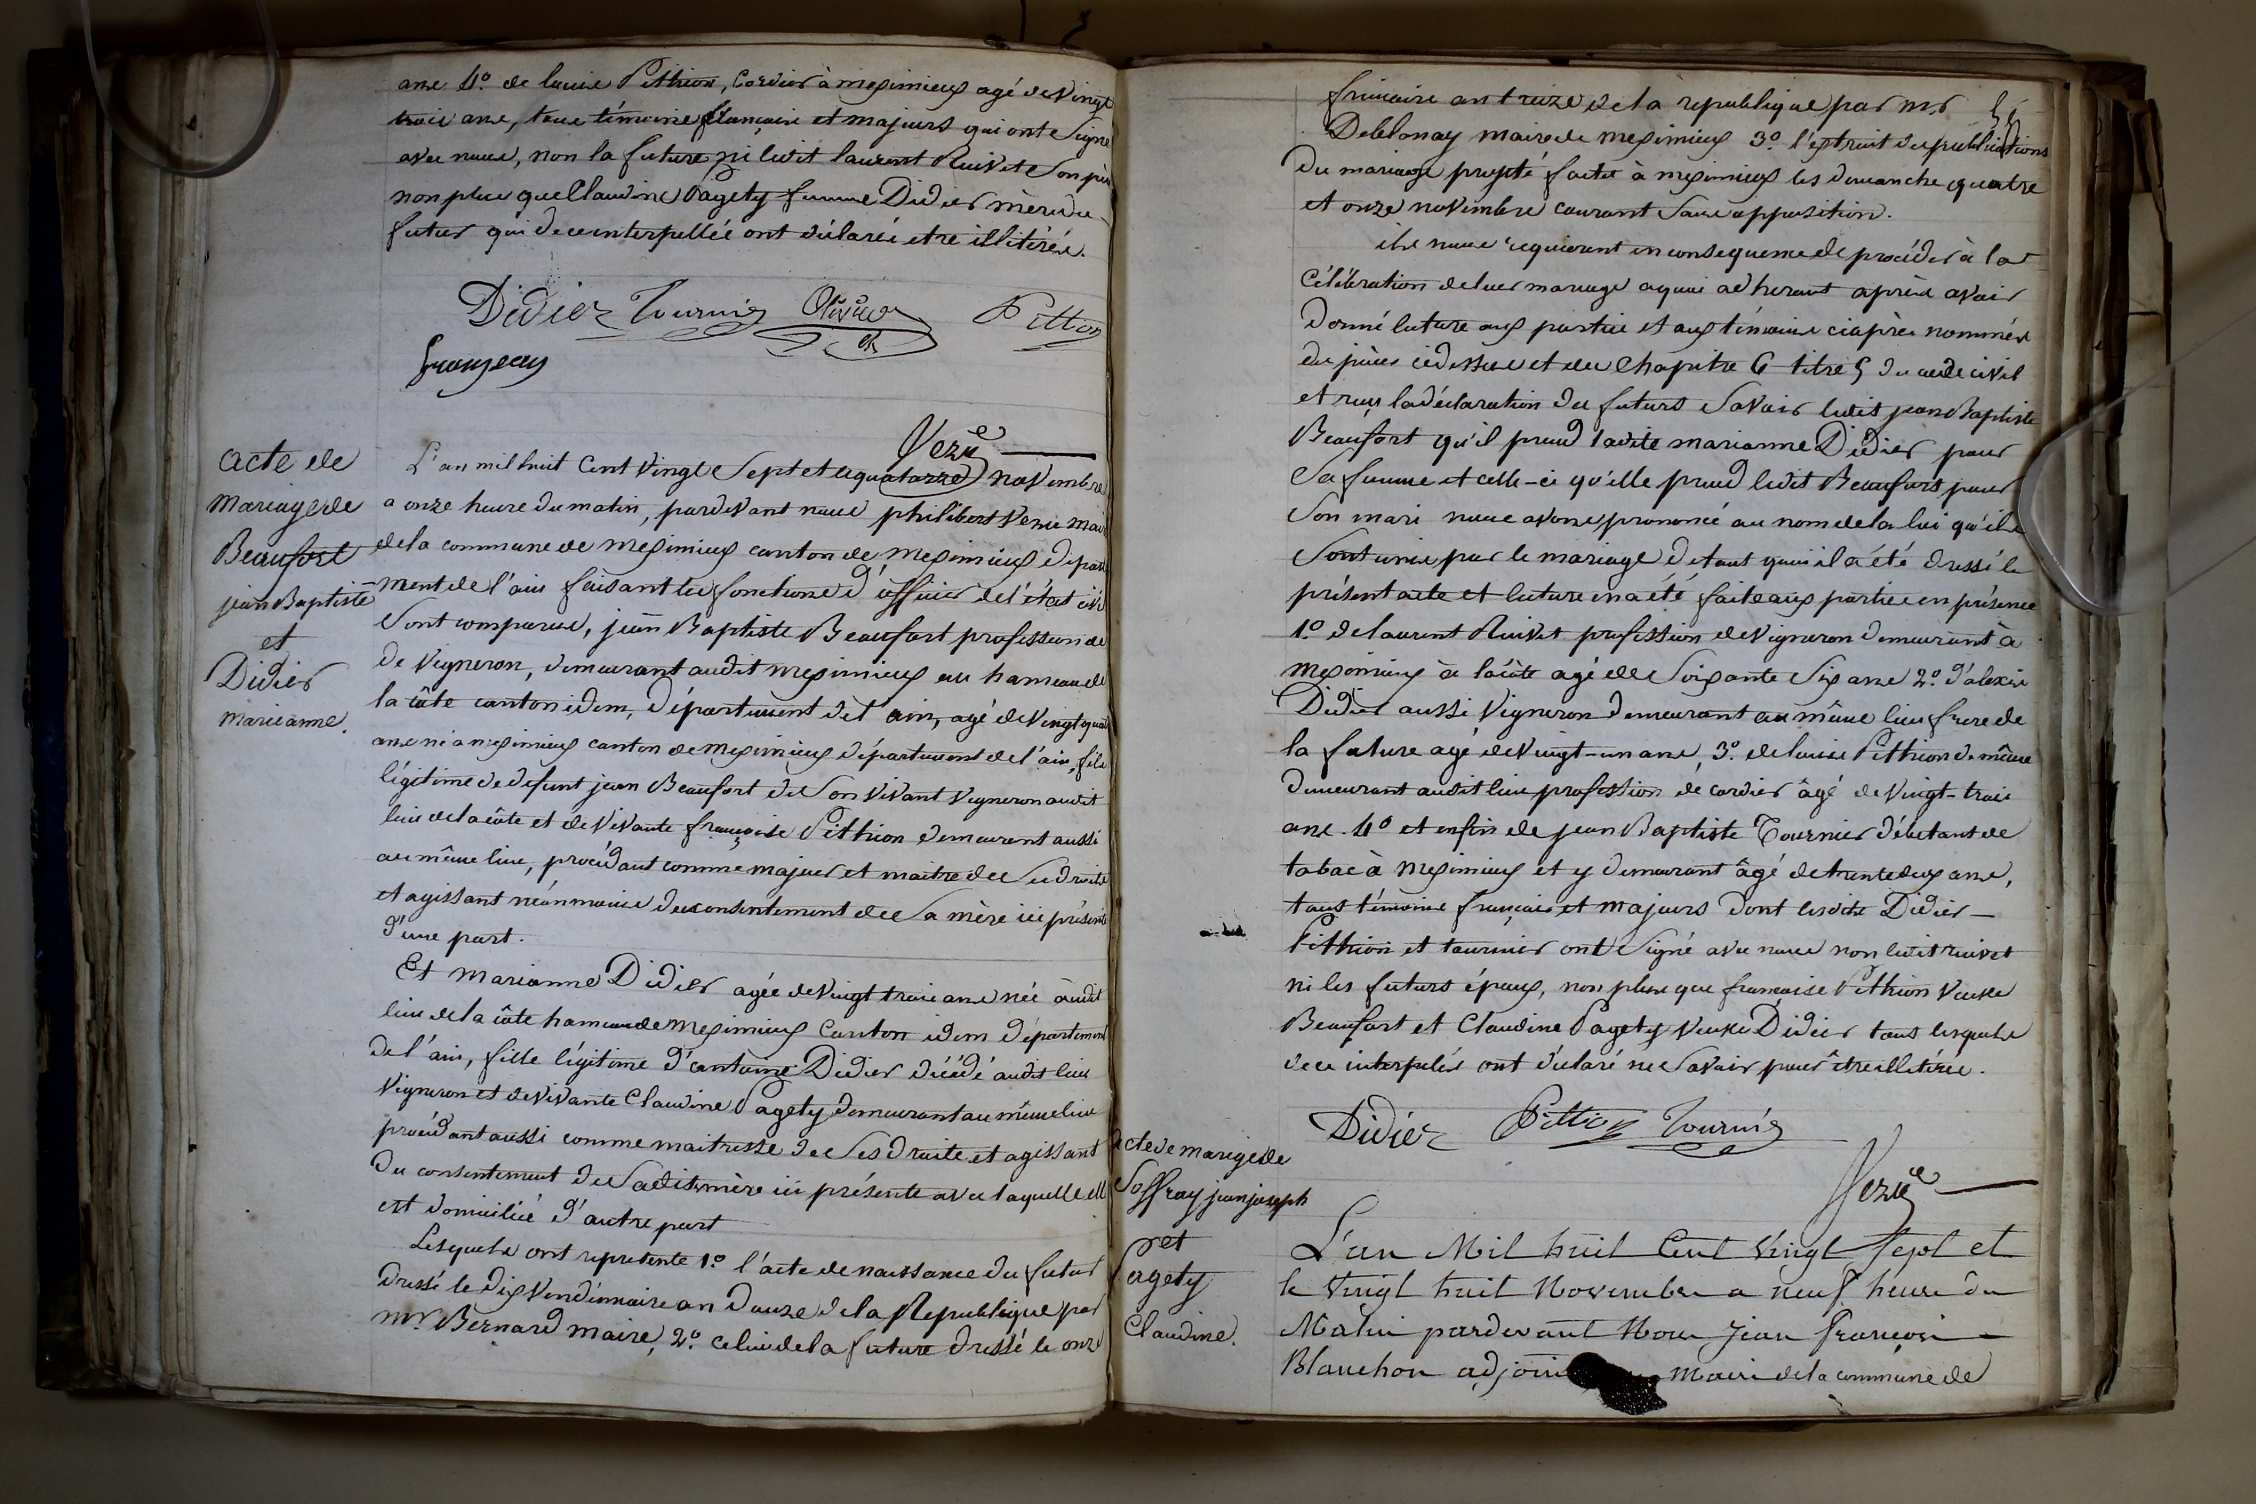 ans 4o. de louis Pithion, Cordier à meximieux agé de Vingt
trois ans, tous témoins français et majeurs qui ont Signé
avec nous, non la future ni ledit laurent Ruivet Son père
non plus que Claudine Pagety femme Didier mère du
futur qui de ce interpellés ont déclarés etre illitérés.
Didier Tournier Olivier Pittion
granjean
Vezu
acte de
mariage de
Beaufort
jean Baptiste
et
Didier
marianne.
L'an mil huit Cent Vingt Sept et le quatorze novembre
a onze heures du matin, pardevant nous philibert Vezu maire
de la commune de meximieux canton de meximieux dépar
tement de l'ain faisant les fonctions d'officier de l'état civil
Sont comparus, jean Baptiste Beaufort profession de
de Vigneron, demeurant audit meximieux au hameau de
la côte canton idem, département de l'ain, agé de Vingt quatre
ans né a meximieux canton de meximieux département de l'ain, fils
légitime de defunt jean Beaufort de Son Vivant Vigneron audit
lieu de la côte et de Vivante françoise Pithion demeurant aussi
au même lieu, procédant comme majeur et maitre de Ses droits
et agissant néanmoins du consentement de Sa mère ici présente
d'une part.
Et marianne Didier agée de Vingt trois ans née audit
lieu de la côte hameau de meximieux Canton idem département
de l'ain, fille légitime d'antoine Didier décédé audit lieu
Vigneron et de Vivante Claudine Pagety demeurant au même lieu
procédant aussi comme maitresse de Ses droits et agissant
du consentement de Sadite mère ici présente avec laquelle elle
est domiciliée d'autre part
Lesquels ont representé 1o. l'acte de naissance du futur
dressé le dix Vendémiaire an douze de la Republique par
mr. Bernard maire, 2o. celui de la future dressé le onze
frimaire an treize de la republique par mr
Deblonay maire de meximieux 3o. l'extrait des publications
du mariage projeté faites à meximieux les dimanche quatre
et onze novembre courant Sans opposition.
ils nous requierent en consequence de procéder à la
Célébration de leur mariage a quoi adherant après avoir
donné lecture aux parties et aux témoins ciaprès nommés
des pièces cidessus et du Chapitre 6 titre 5 du code civil
et reçu la déclaration des futurs Savoir ledit jean Baptiste
Beaufort qu'il prend ladite marianne Didier pour
Sa femme et celle-ci qu'elle prend ledit Beaufort pour
Son mari nous avons prononcé au nom de la loi qu'ils
Sont unis par le mariage de tout quoi il a été dressé le
présent acte et lecture en a été faite aux parties en présence
1o. de laurent Ruivet profession de Vigneron demeurant à
meximieux à la côte agé de Soixante Six ans 2o. d'alexis
Didier aussi Vigneron demeurant au même lieu frere de
la future agé de Vingt-un ans, 3o. de louis Pithion de même
demeurant audit lieu profession de cordier âgé de Vingt-trois
ans. 4o et enfin de jean Baptiste Tournier débitant de
tabac à meximieux et y demeurant âgé de trente deux ans,
tous témoins français et majeurs dont lesdits Didier
Pithion et tournier ont Signé avec nous non ledit ruivet
ni les futurs époux, non plus que françoise Pithion Veuve
Beaufort et Claudine Pagety Veuve Didier tous lesquels
de ce interpelés ont déclaré ne Savoir pour être illitérés.
Didier Pittion Tournier
Vezu
acte de mariage de
Soffray jean joseph
et
Pagety
Claudine.
L'an Mil huit Cent Vingt Sept et
le Vingt huit Novembre a neuf heures du
Matin pardevant Nous Jean François
Blanchon adjoint maire de la commune de